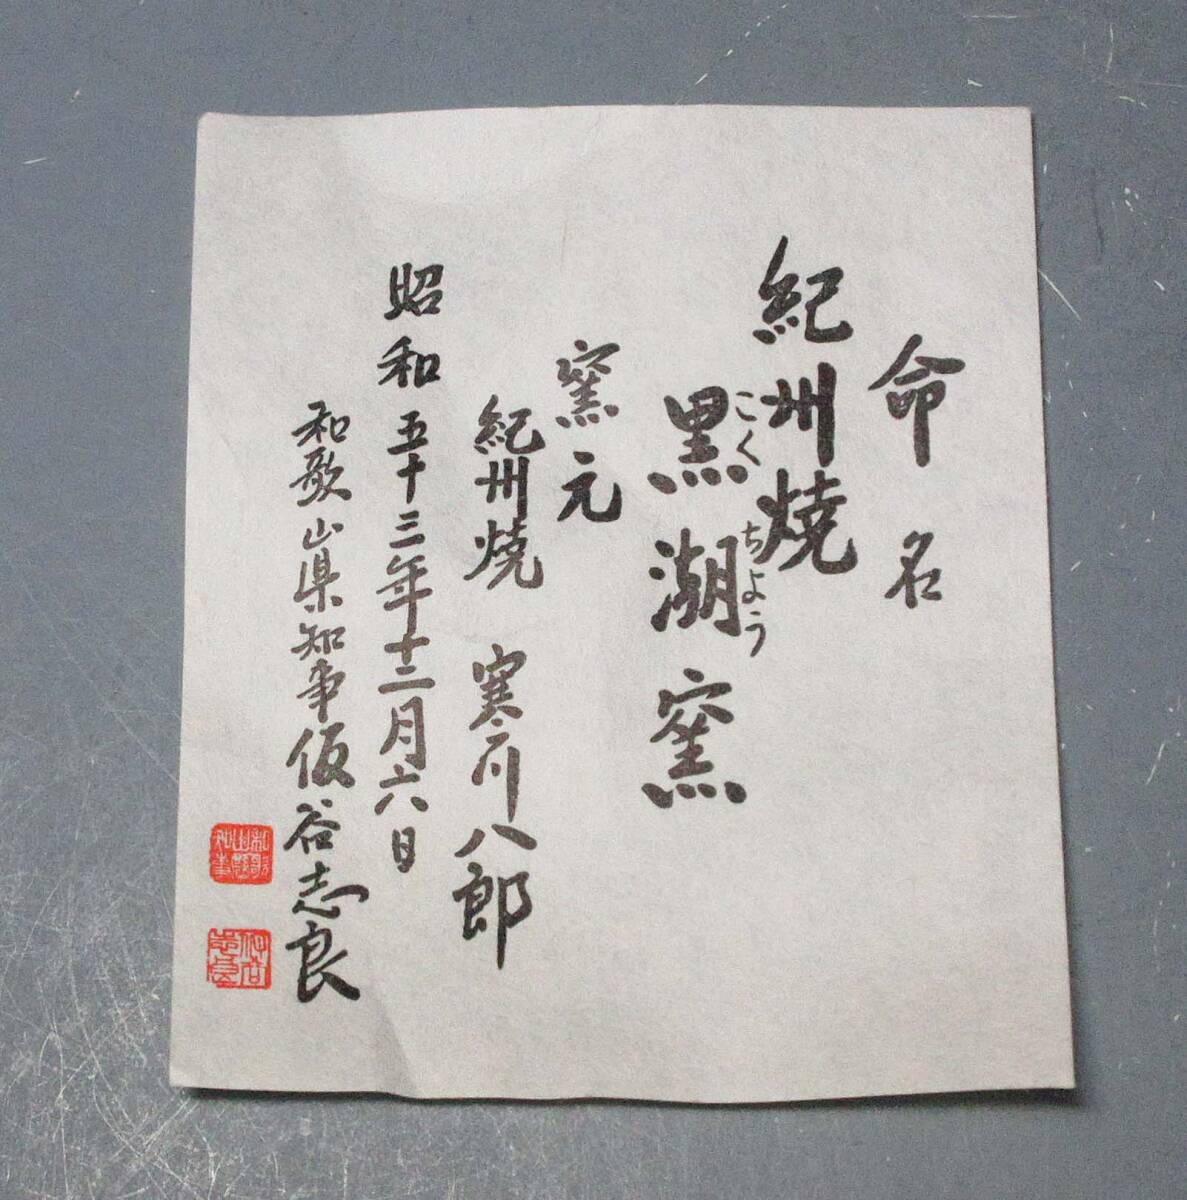 命名
紀州焼
黒潮窯
こくちょう
窯元
紀州焼 寒川八郎
昭和五十三年十二月六日
和歌山県知事仮谷志良
和歌山県知事
仮谷志良